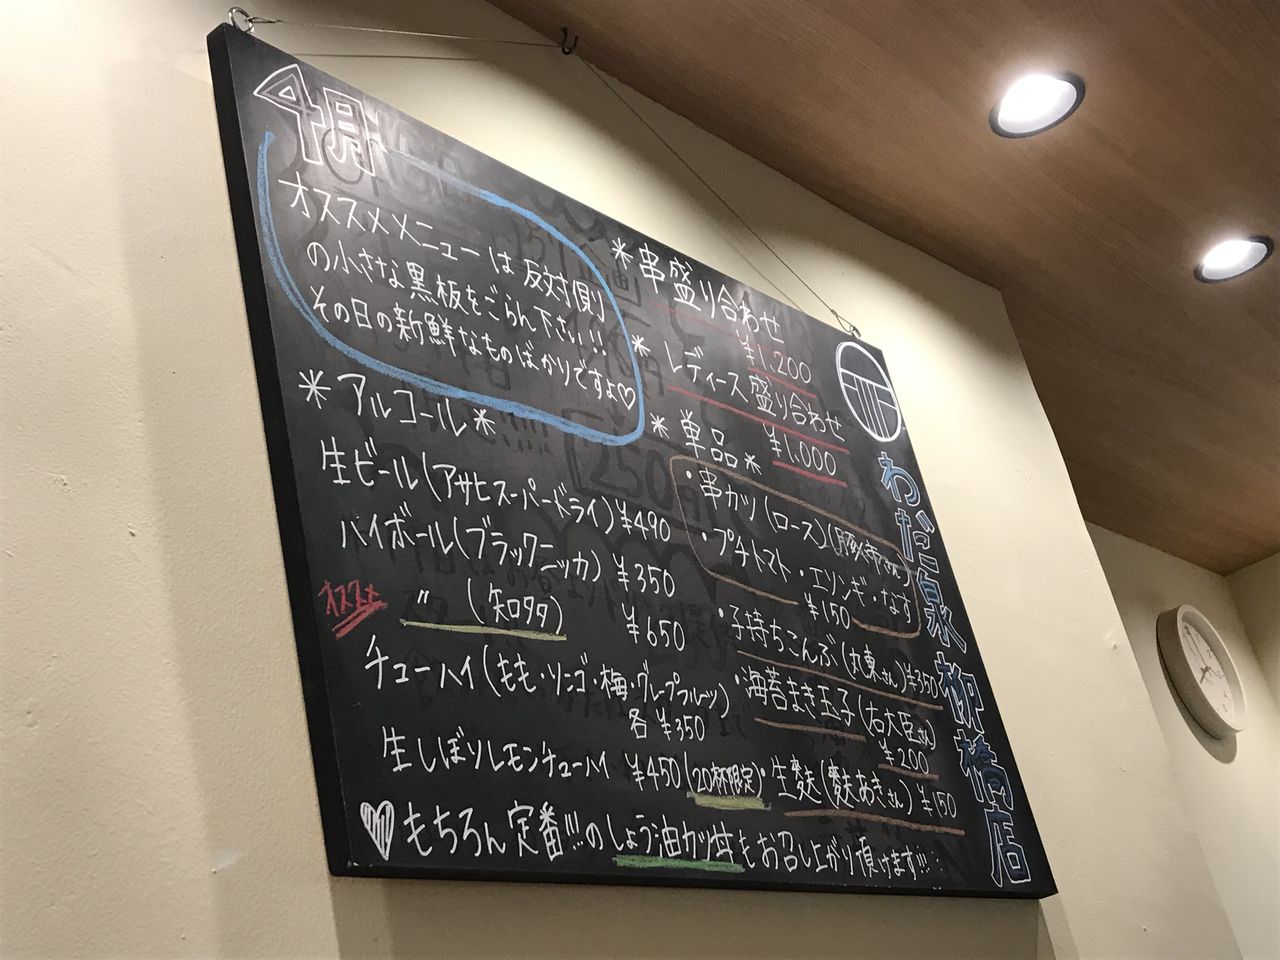 4月
オススメメニューは反対側
の小さな黒板をごらん下さい!!
その日の新鮮なものばかりですよ♡
*アルコール*
生ビール(アサヒスーパードライ)¥490
ハイボール(ブラックニッカ) ¥350
オススメ 〃 (知多) ¥650
チューハイ(もも・リンゴ・梅・グレープフルーツ)
各¥350
生しぼりレモンチューハイ ¥450(20杯限定)
*串盛り合わせ
¥1,200
*レディース盛り合わせ
¥1,000
*単品*
・串カツ(ロース)
・プチトマト・エリンギ・なす
¥150
・子持ちこんぶ(丸東さん)¥350
・海苔まき玉子(右大臣さん)
¥200
・生麩(麩あきさん)¥150
♡もちろん定番!!!のしょう油カツ丼もお召し上がり頂けます!!!
わだ泉 柳橋店